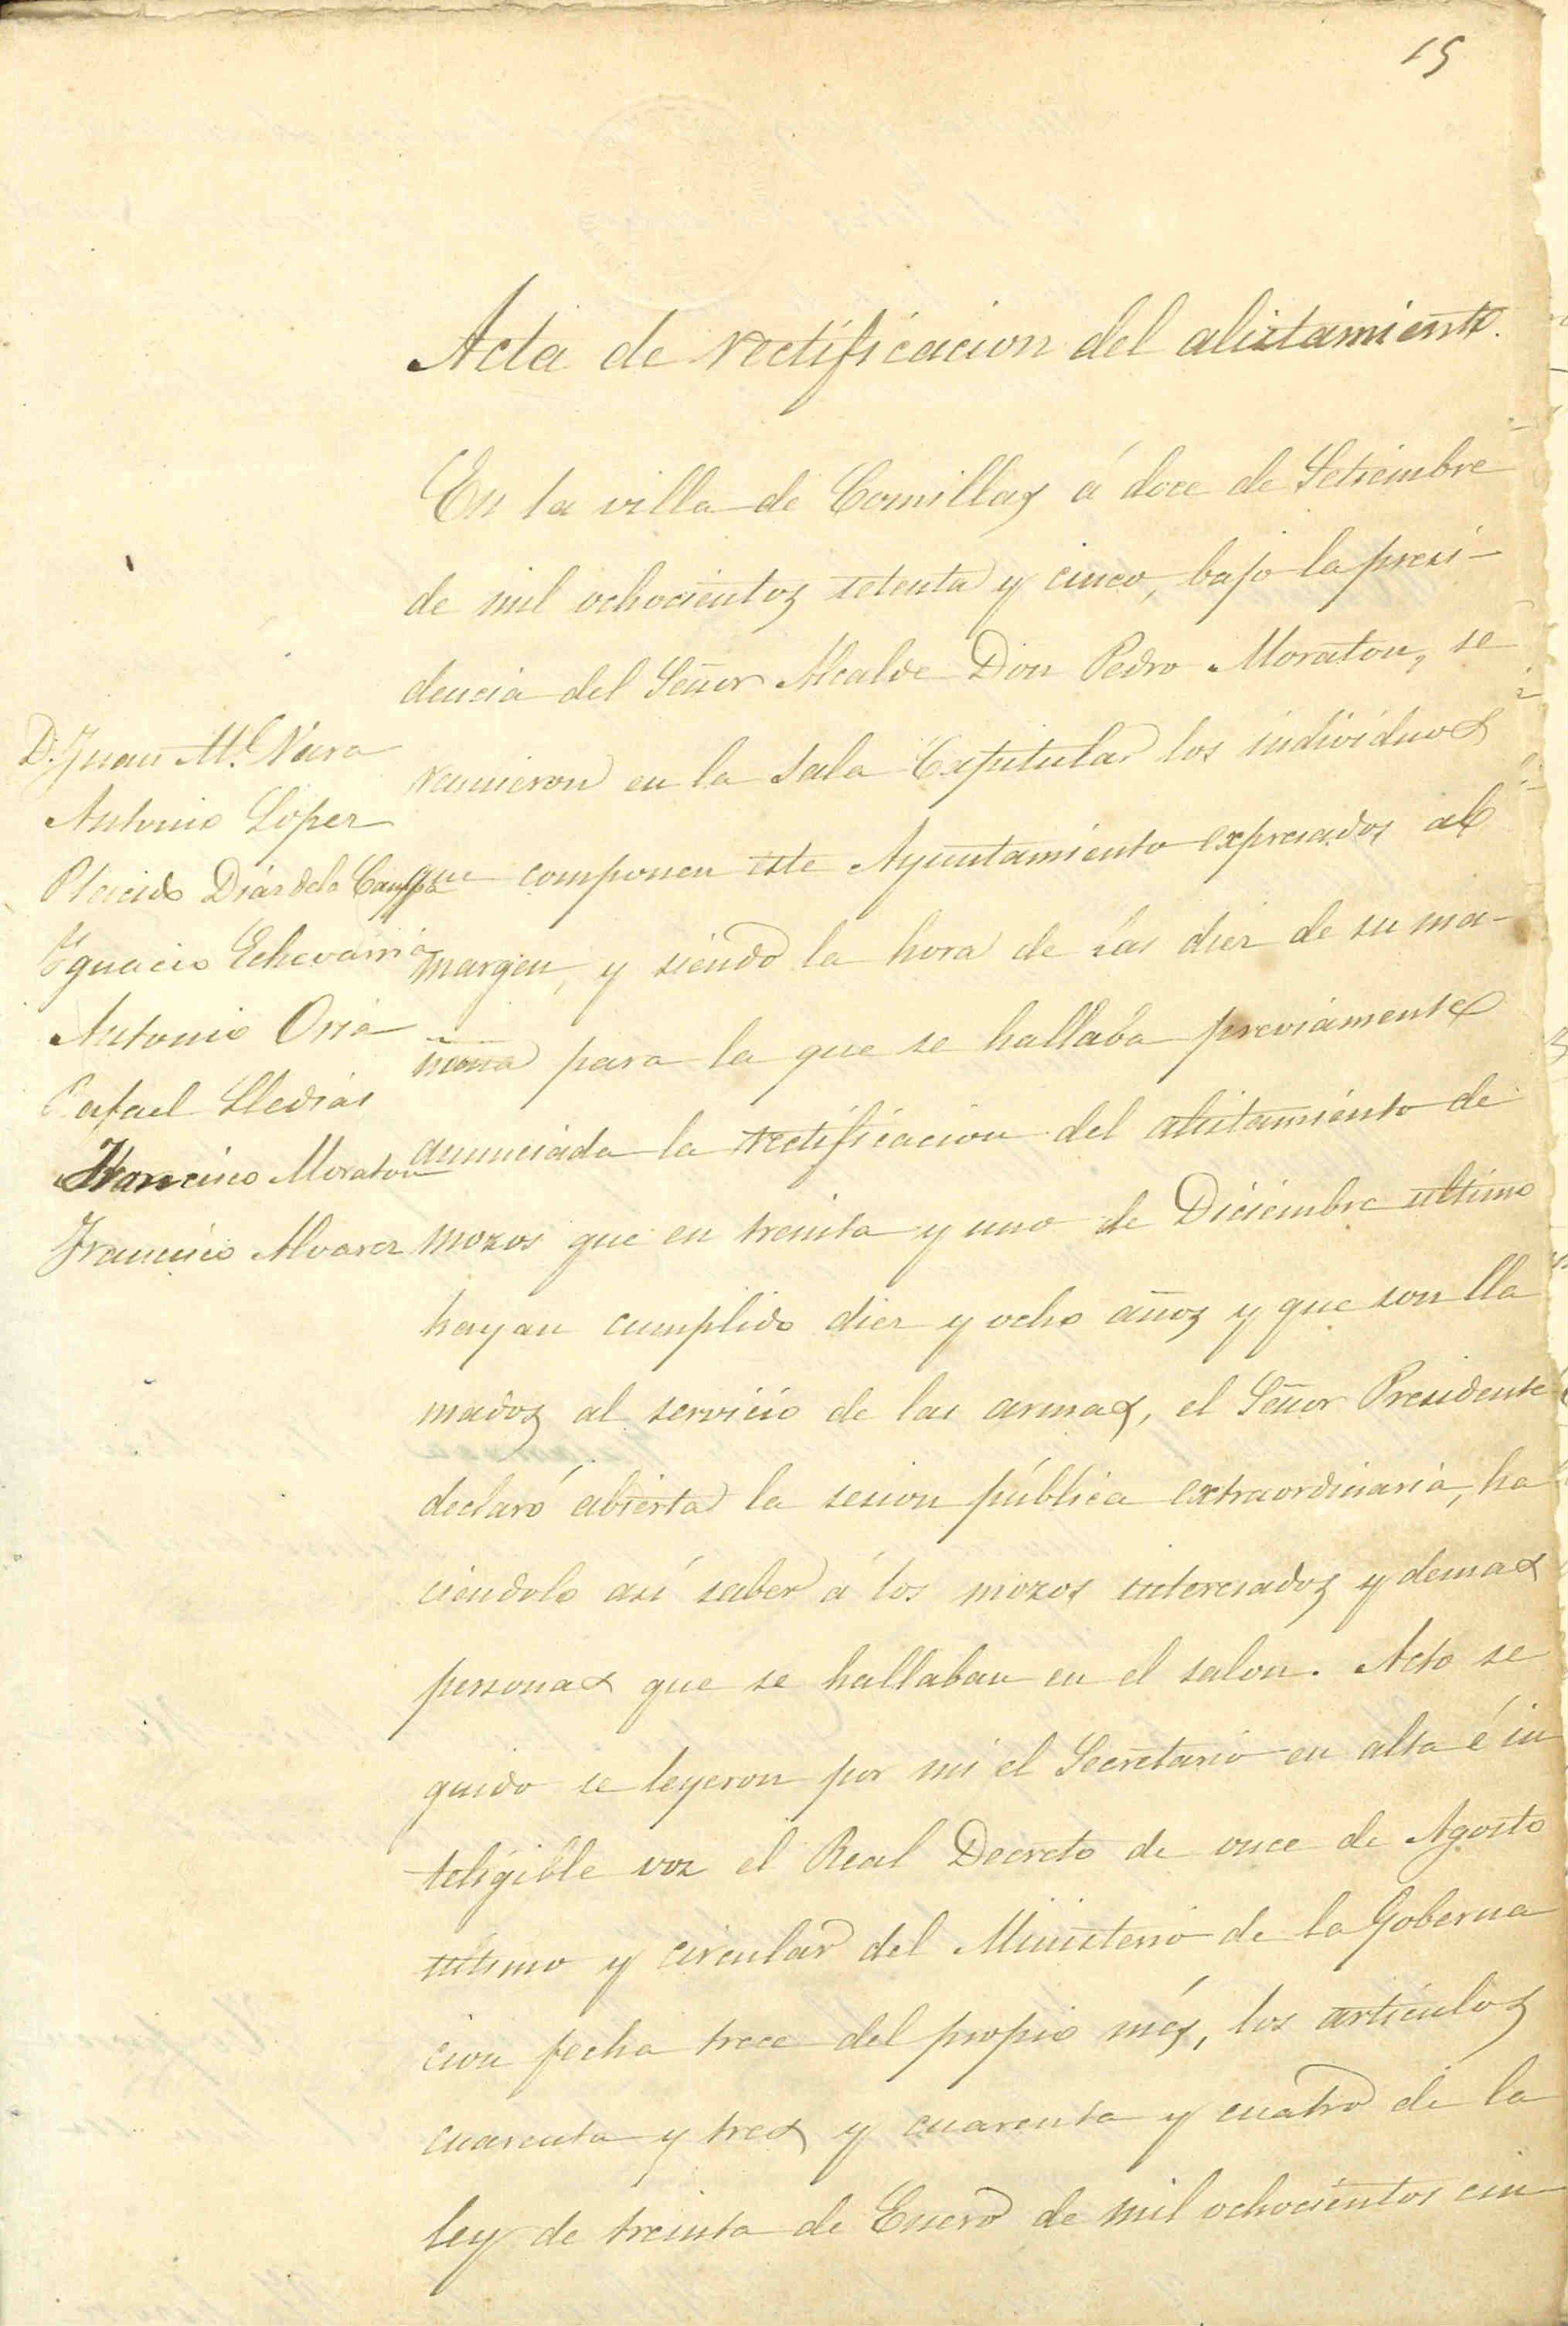 15
Acta de rectificacion del alistamiento.
En la villa de Comillas á doce de Setiembre
de mil ochocientos setenta y cinco, bajo la presi-
dencia del Señor Alcalde Don Pedro Moraton, se
reunieron en la Sala Capitular los individuos
que componen este Ayuntamiento expresados al
margen, y siendo la hora de las diez de su ma-
ñana para la que se hallaba previamente
anunciada la rectificacion del alistamiento de
mozos que en treinta y uno de Diciembre ultimo
hayan cumplido diez y ocho años y que son lla
mados al servicio de las armas, el Señor Presidente
declaró abierta la sesion pública extraordinaria, ha
ciendolo así saber á los mozos interesados y demas
personas que se hallaban en el salon. Acto se
guido se leyeron por mi el Secretario en alta é in
teligible voz el Real Decreto de once de Agosto
ultimo y circular del Ministerio de la Goberna
cion fecha trece del propio més, los artículos
cuarenta y tres y cuarenta y cuatro de la
ley de treinta de Enero de mil ochocientos cin
D. Juan M.
Antonio Lopez
Placido Diáz de la Campa
Ygnacio Echevarria
Antonio Oria
Rafael
Francisco Moraton
Francisco Alvarez